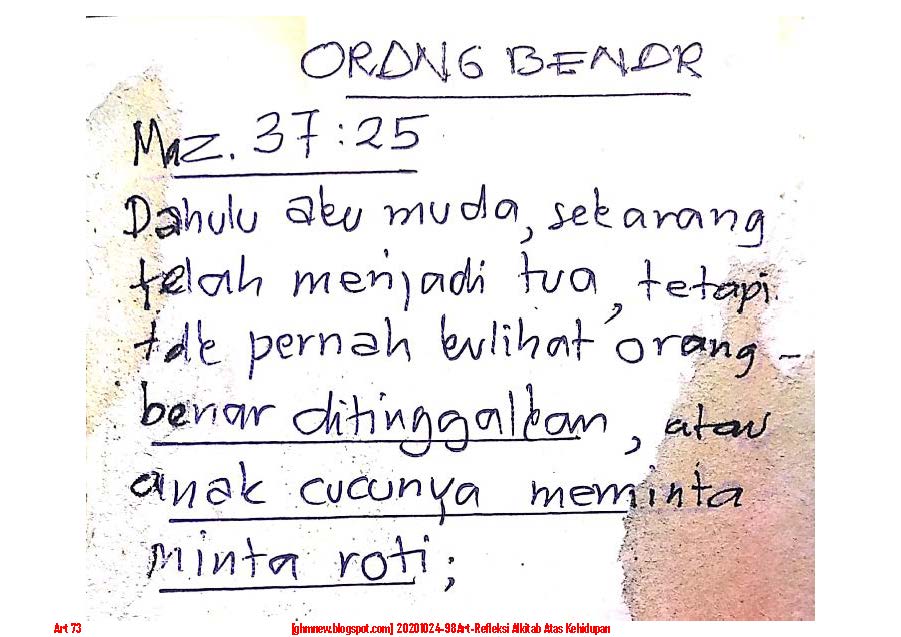 ORANG BENAR
Maz. 37:25
Dahulu aku muda, sekarang
telah menjadi tua, tetapi
tdk pernah kulihat orang -
benar ditinggalkan, atau
anak cucunya meminta
minta roti;
Art 73 [ghmnew.blogspot.com] 20201024-98Art-Refleksi Alkitab Atas Kehidupan